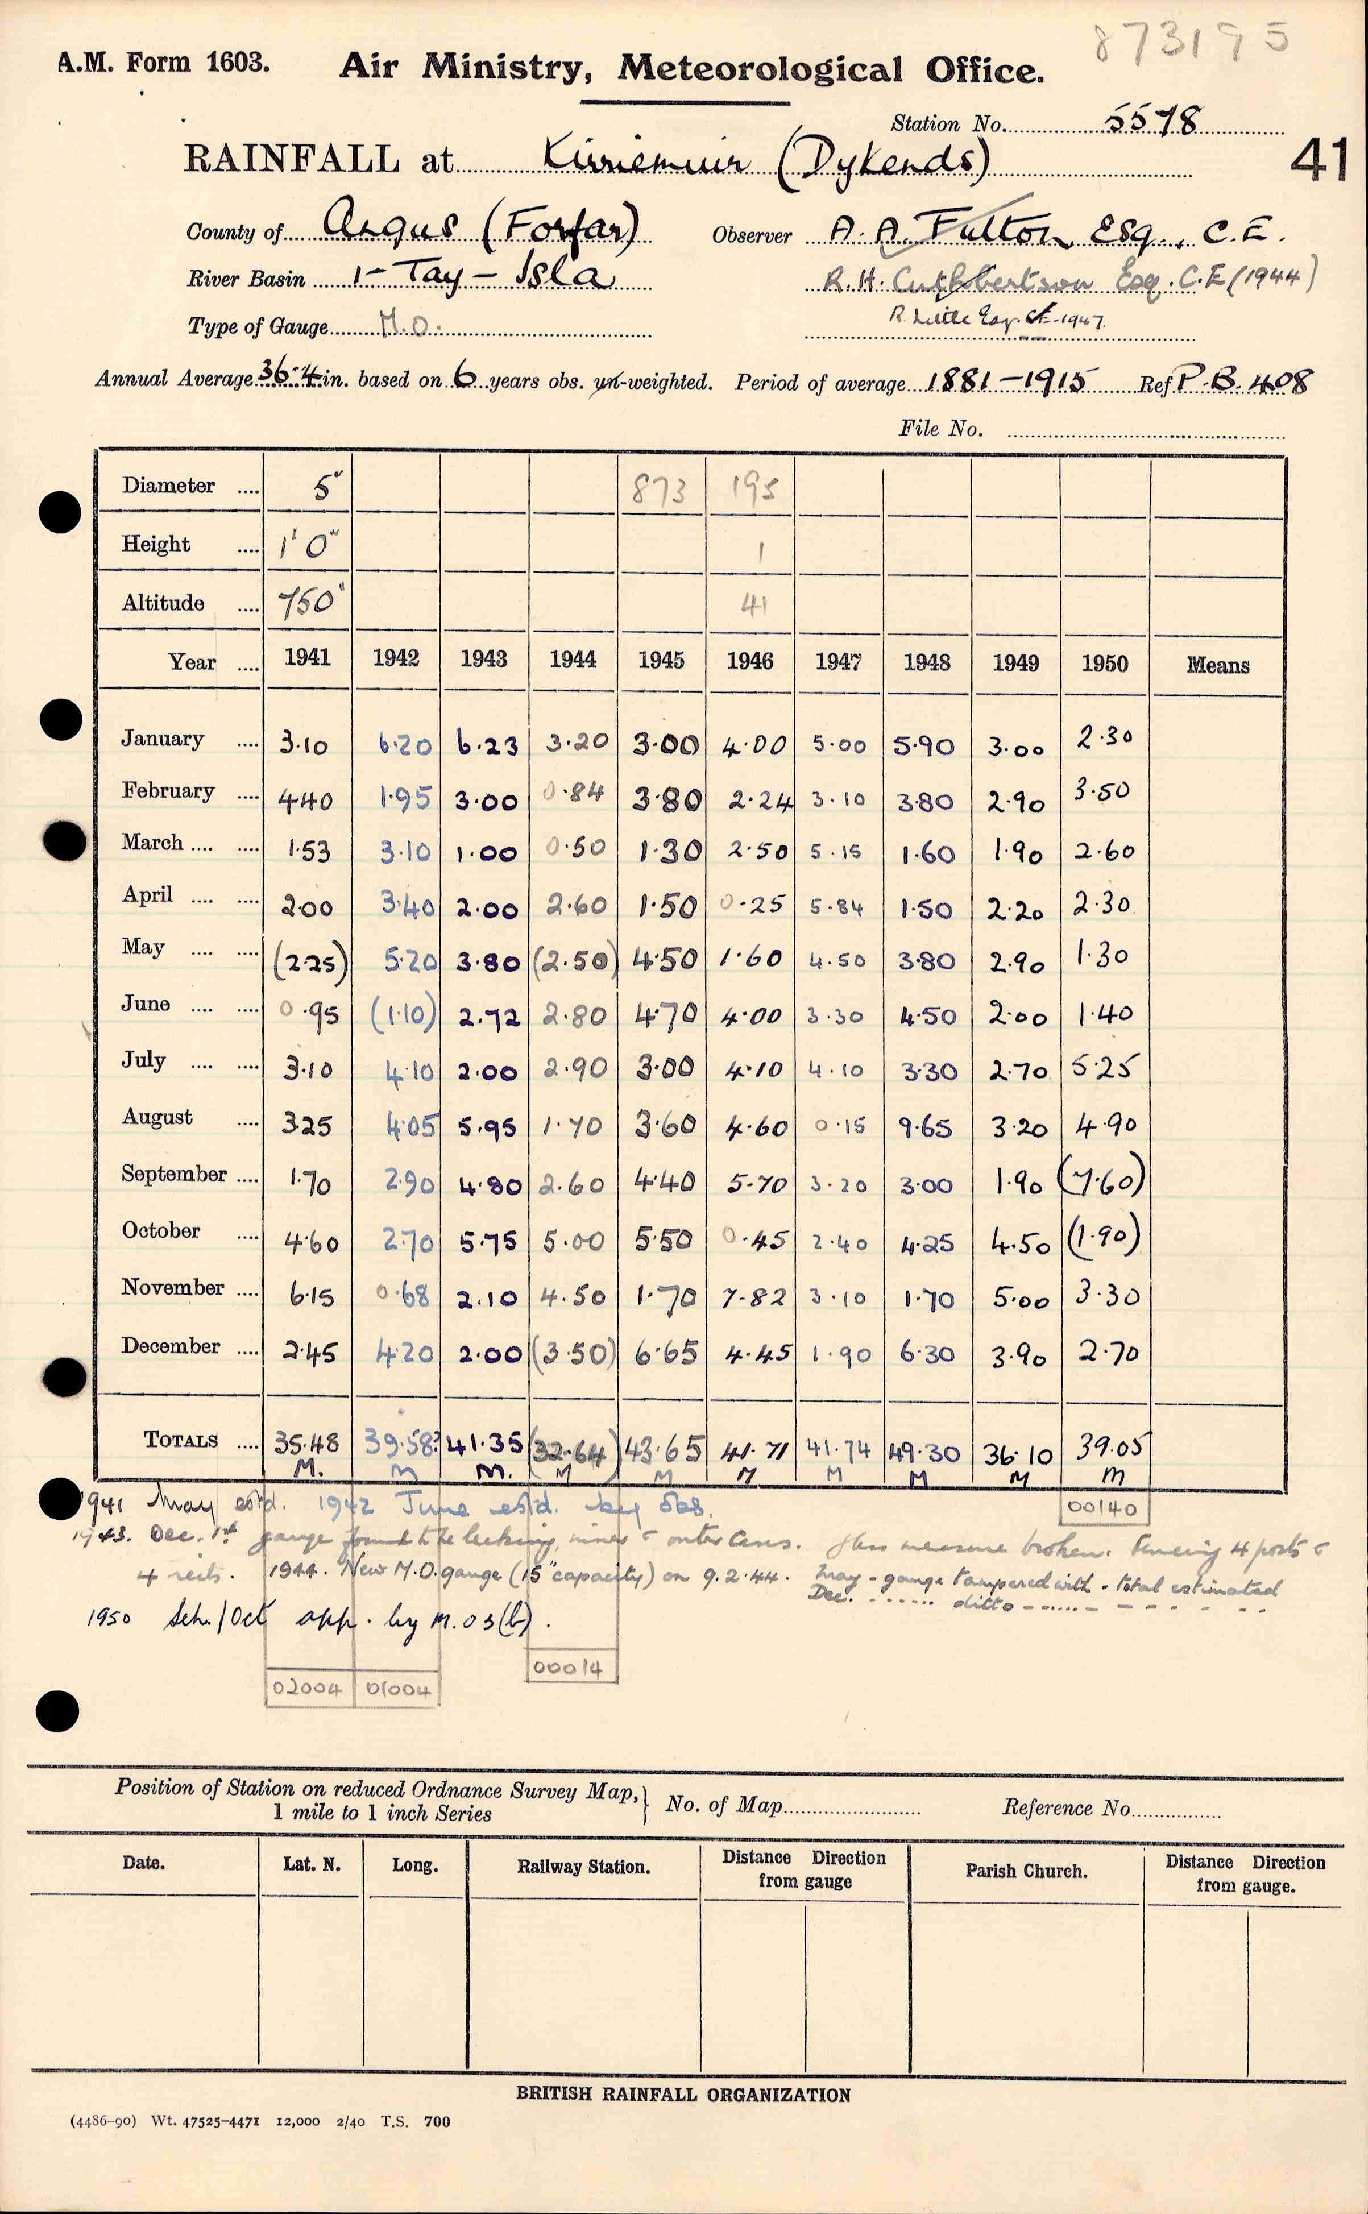 873195
A.M. Form 1603. Air Ministry, Meteorological Office.
Station No. 5578
41
RAINFALL at Kirriemuir (Dykends)
County of Angus (Forfar) Observer A. A. Fulton Esq., C.E.
River Basin 1 - Tay - Isla R.H. Cuthbertson Esq. C.E (1944)
Type of Gauge M.O. R. Little Esq. CE 1947
Annual Average 36.4 in. based on 6 years obs. un-weighted. Period of average 1881-1915 Ref P.B. 408
File No.
Diameter 5" 873 195
Height 1' 0" 1
Altitude 750' 41
Year 1941 1942 1943 1944 1945 1946 1947 1948 1949 1950 Means
January 3.10 6.20 6.23 3.20 3.00 4.00 5.00 5.90 3.00 2.30
February 4.40 1.95 3.00 0.84 3.80 2.24 3.10 3.80 2.90 3.50
March 1.53 3.10 1.00 0.50 1.30 2.50 5.15 1.60 1.90 2.60
April 2.00 3.40 2.00 2.60 1.50 0.25 5.84 1.50 2.20 2.30
May (2.25) 5.20 3.80 (2.50) 4.50 1.60 4.50 3.80 2.90 1.30
June 0.95 (1.10) 2.72 2.80 4.70 4.00 3.30 4.50 2.00 1.40
July 3.10 4.10 2.00 2.90 3.00 4.10 4.10 3.30 2.70 5.25
August 3.25 4.05 5.95 1.70 3.60 4.60 0.15 9.65 3.20 4.90
September 1.70 2.90 4.80 2.60 4.40 5.70 3.20 3.00 1.90 (7.60)
October 4.60 2.70 5.75 5.00 5.50 0.45 2.40 4.25 4.50 (1.90)
November 6.15 0.68 2.10 4.50 1.70 7.82 3.10 1.70 5.00 3.30
December 2.45 4.20 2.00 (3.50) 6.65 4.45 1.90 6.30 3.90 2.70
TOTALS 35.48 39.58? 41.35 (32.64) 43.65 41.71 41.74 49.30 36.10 39.05
M. M M. M M M M M M M
00140
1941 May estd. 1942 June estd. by obs.
1943. Dec. 1st gauge found to be leaking, inner & outer cans. Glass measure broken. Fencing 4 posts &
4 rails. 1944. New M.O. gauge (15" capacity) on 9.2.44. May - gauge tampered with - total estimated
Dec. ...... ditto ......
1950 Sep. / Oct app. by M.O 3 (b).
00014
02004 01004
Position of Station on reduced Ordnance Survey Map,
1 mile to 1 inch Series
No. of Map Reference No.
Date. Lat. N. Long. Railway Station. Distance Direction from gauge Parish Church. Distance Direction from gauge.
BRITISH RAINFALL ORGANIZATION
(4486-90) Wt. 47525-4471 12,000 2/40 T.S. 700